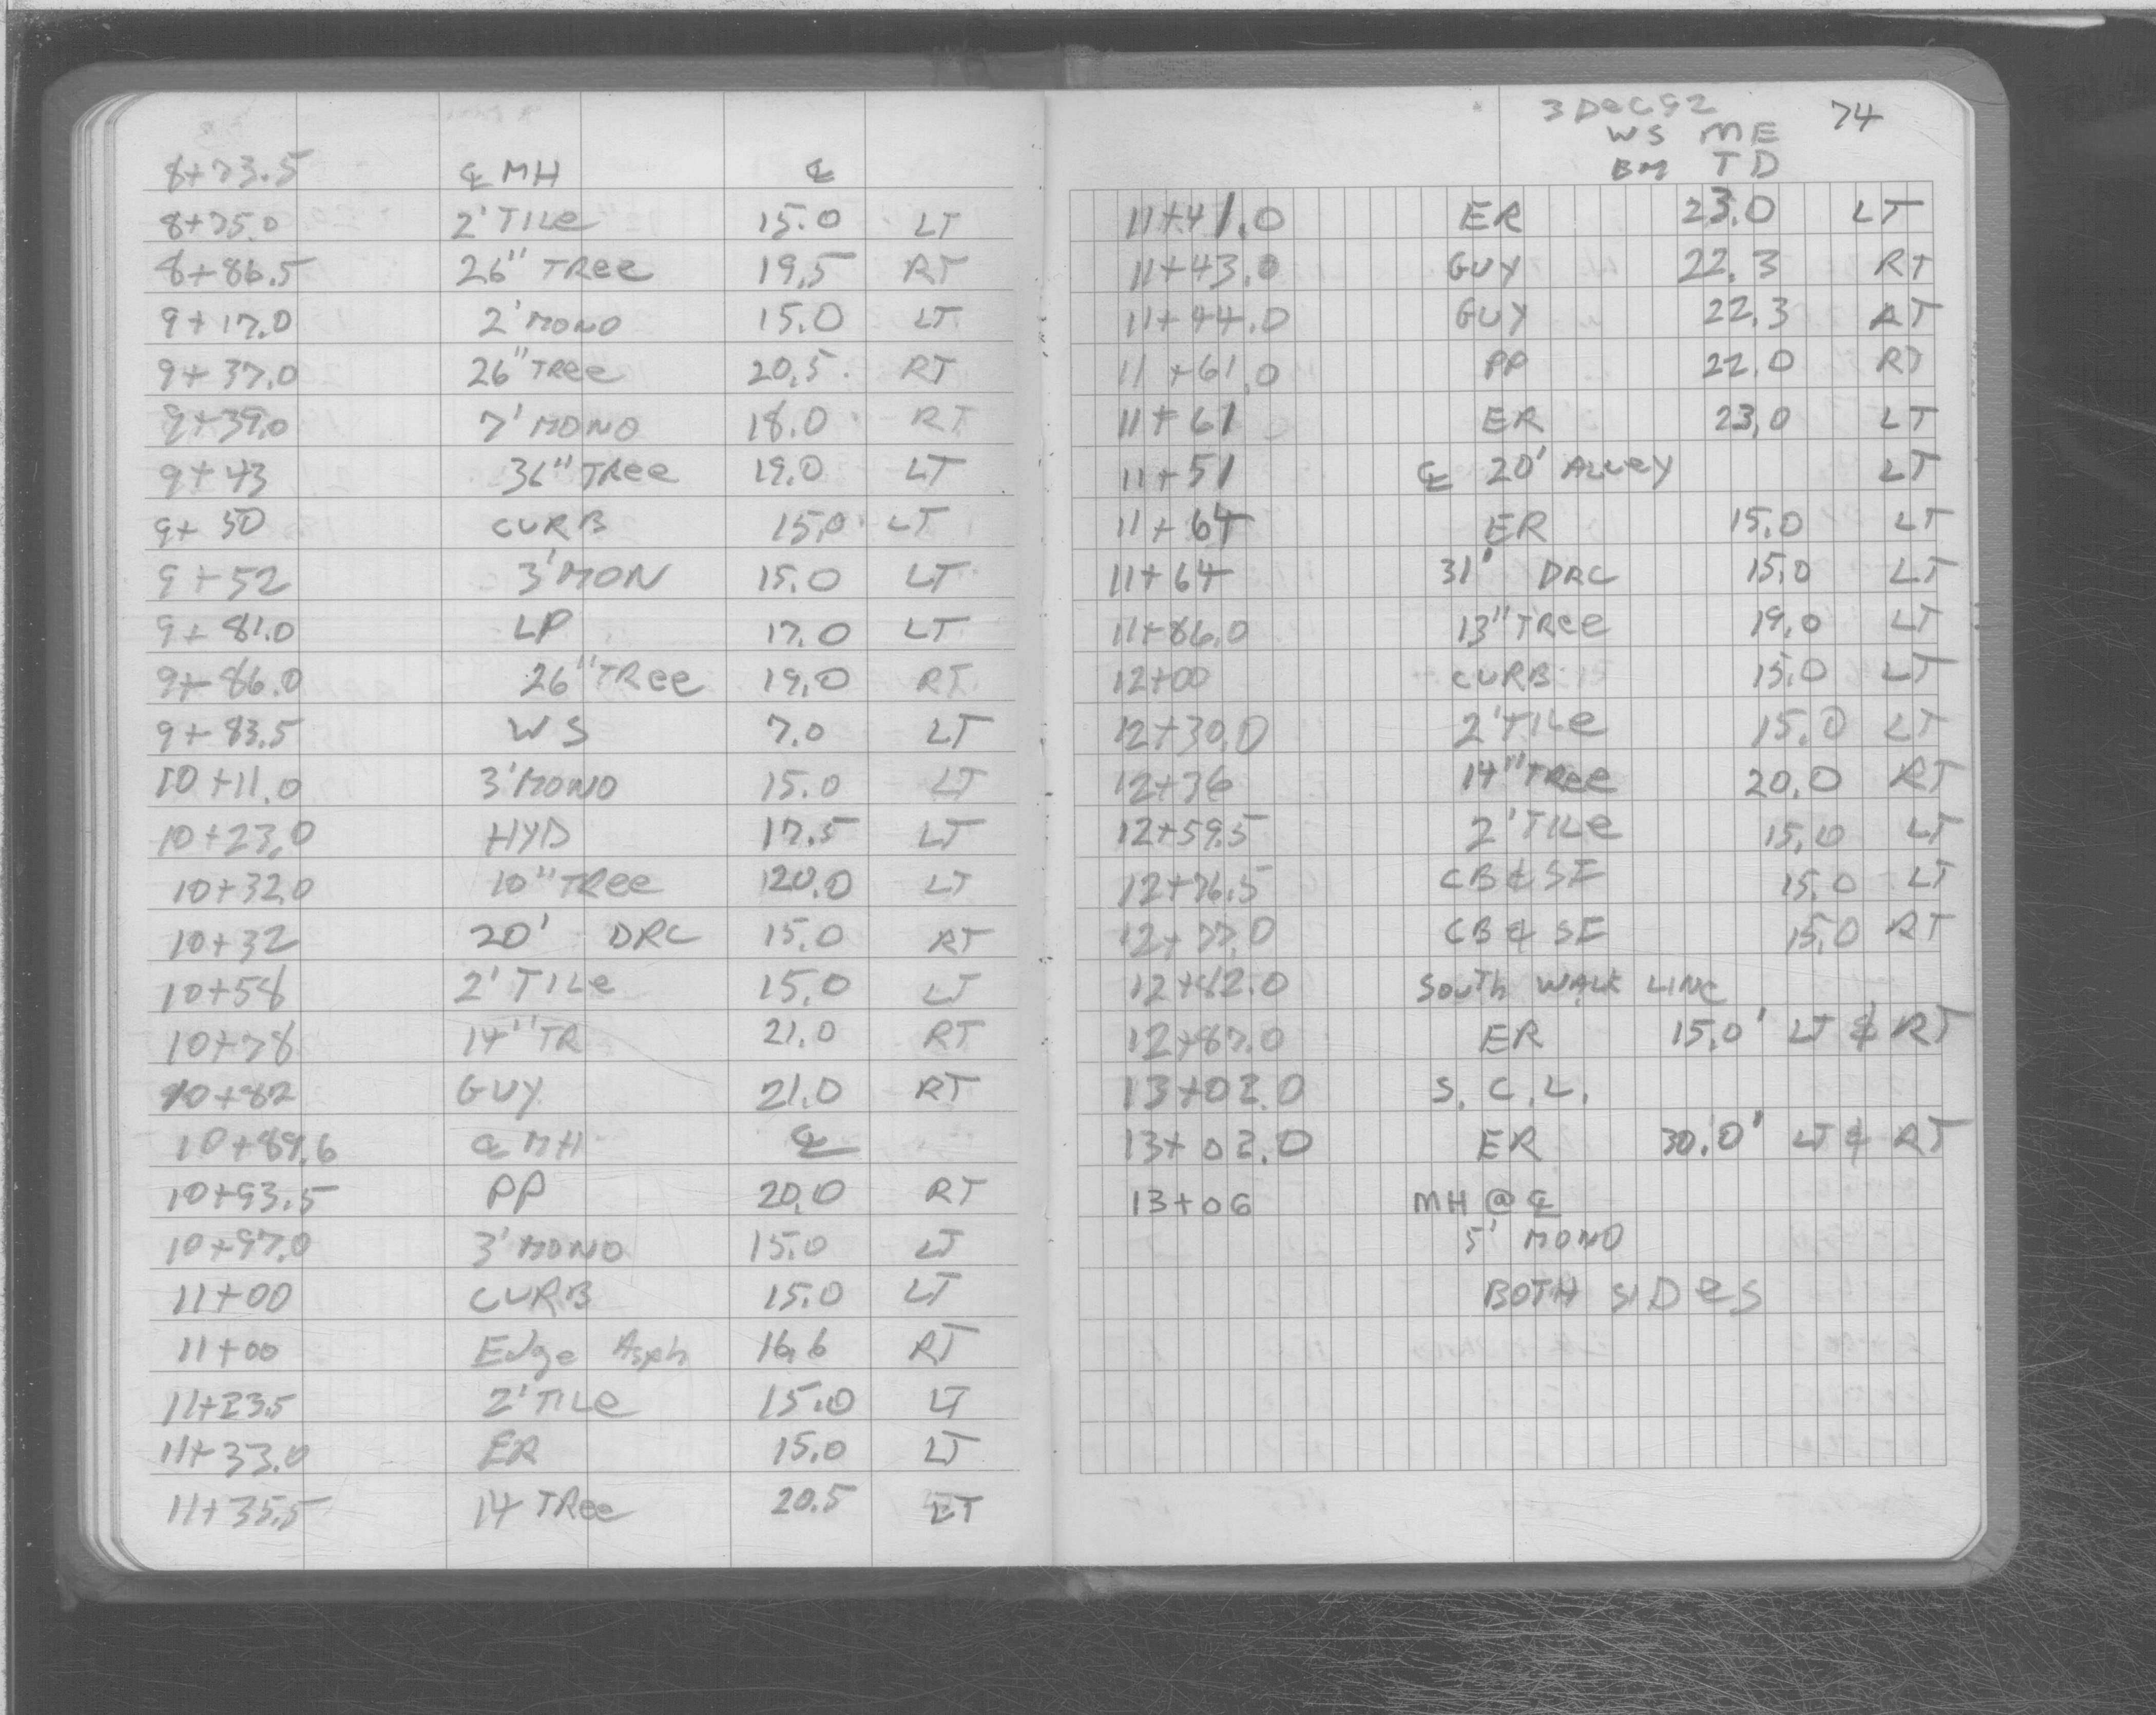 8+73.5 ℄ MH ℄
8+75.0 2' TILe 15.0 LT
8+86.5 26" TRee 19.5 RT
9+17.0 2' MONO 15.0 LT
9+37.0 26" TRee 20.5 RT
9+39.0 7' MONO 18.0 RT
9+43 36" TRee 19.0 LT
9+50 CURB 15.0 LT
9+52 3' MON 15.0 LT
9+81.0 LP 17.0 LT
9+86.0 26" TRee 19.0 RT
9+83.5 WS 7.0 LT
10+11.0 3' MONO 15.0 LT
10+23.0 HYD 17.5 LT
10+32.0 10" TRee 20.0 LT
10+32 20' DRC 15.0 RT
10+58 2' TILe 15.0 LT
10+78 14" TR 21.0 RT
10+82 GUY 21.0 RT
10+89.6 ℄ MH ℄
10+93.5 PP 20.0 RT
10+97.0 3' MONO 15.0 LT
11+00 CURB 15.0 LT
11+00 Edge Asph 16.6 RT
11+23.5 2' TILe 15.0 LT
11+33.0 ER 15.0 LT
11+35.5 14 TRee 20.5 LT
3 Dec 92 74
WS ME
BM TD
11+41.0 ER 23.0 LT
11+43.0 GUY 22.3 RT
11+44.0 GUY 22.3 RT
11+61.0 PP 22.0 RT
11+61 ER 23.0 LT
11+51 ℄ 20' ALLeY LT
11+64 ER 15.0 LT
11+64 31' DRC 15.0 LT
11+86.0 13" TRee 19.0 LT
12+00 CURB 15.0 LT
12+30.0 2' TILe 15.0 LT
12+36 14" TRee 20.0 RT
12+59.5 2' TILe 15.0 LT
12+76.5 CB & SE 15.0 LT
12+77.0 CB & SE 15.0 RT
12+82.0 SouTh WALK LINE
12+87.0 ER 15.0' LT & RT
13+02.0 S. C. L.
13+02.0 ER 30.0' LT & RT
13+06 MH @ ℄
5' MONO
BOTH SIDeS